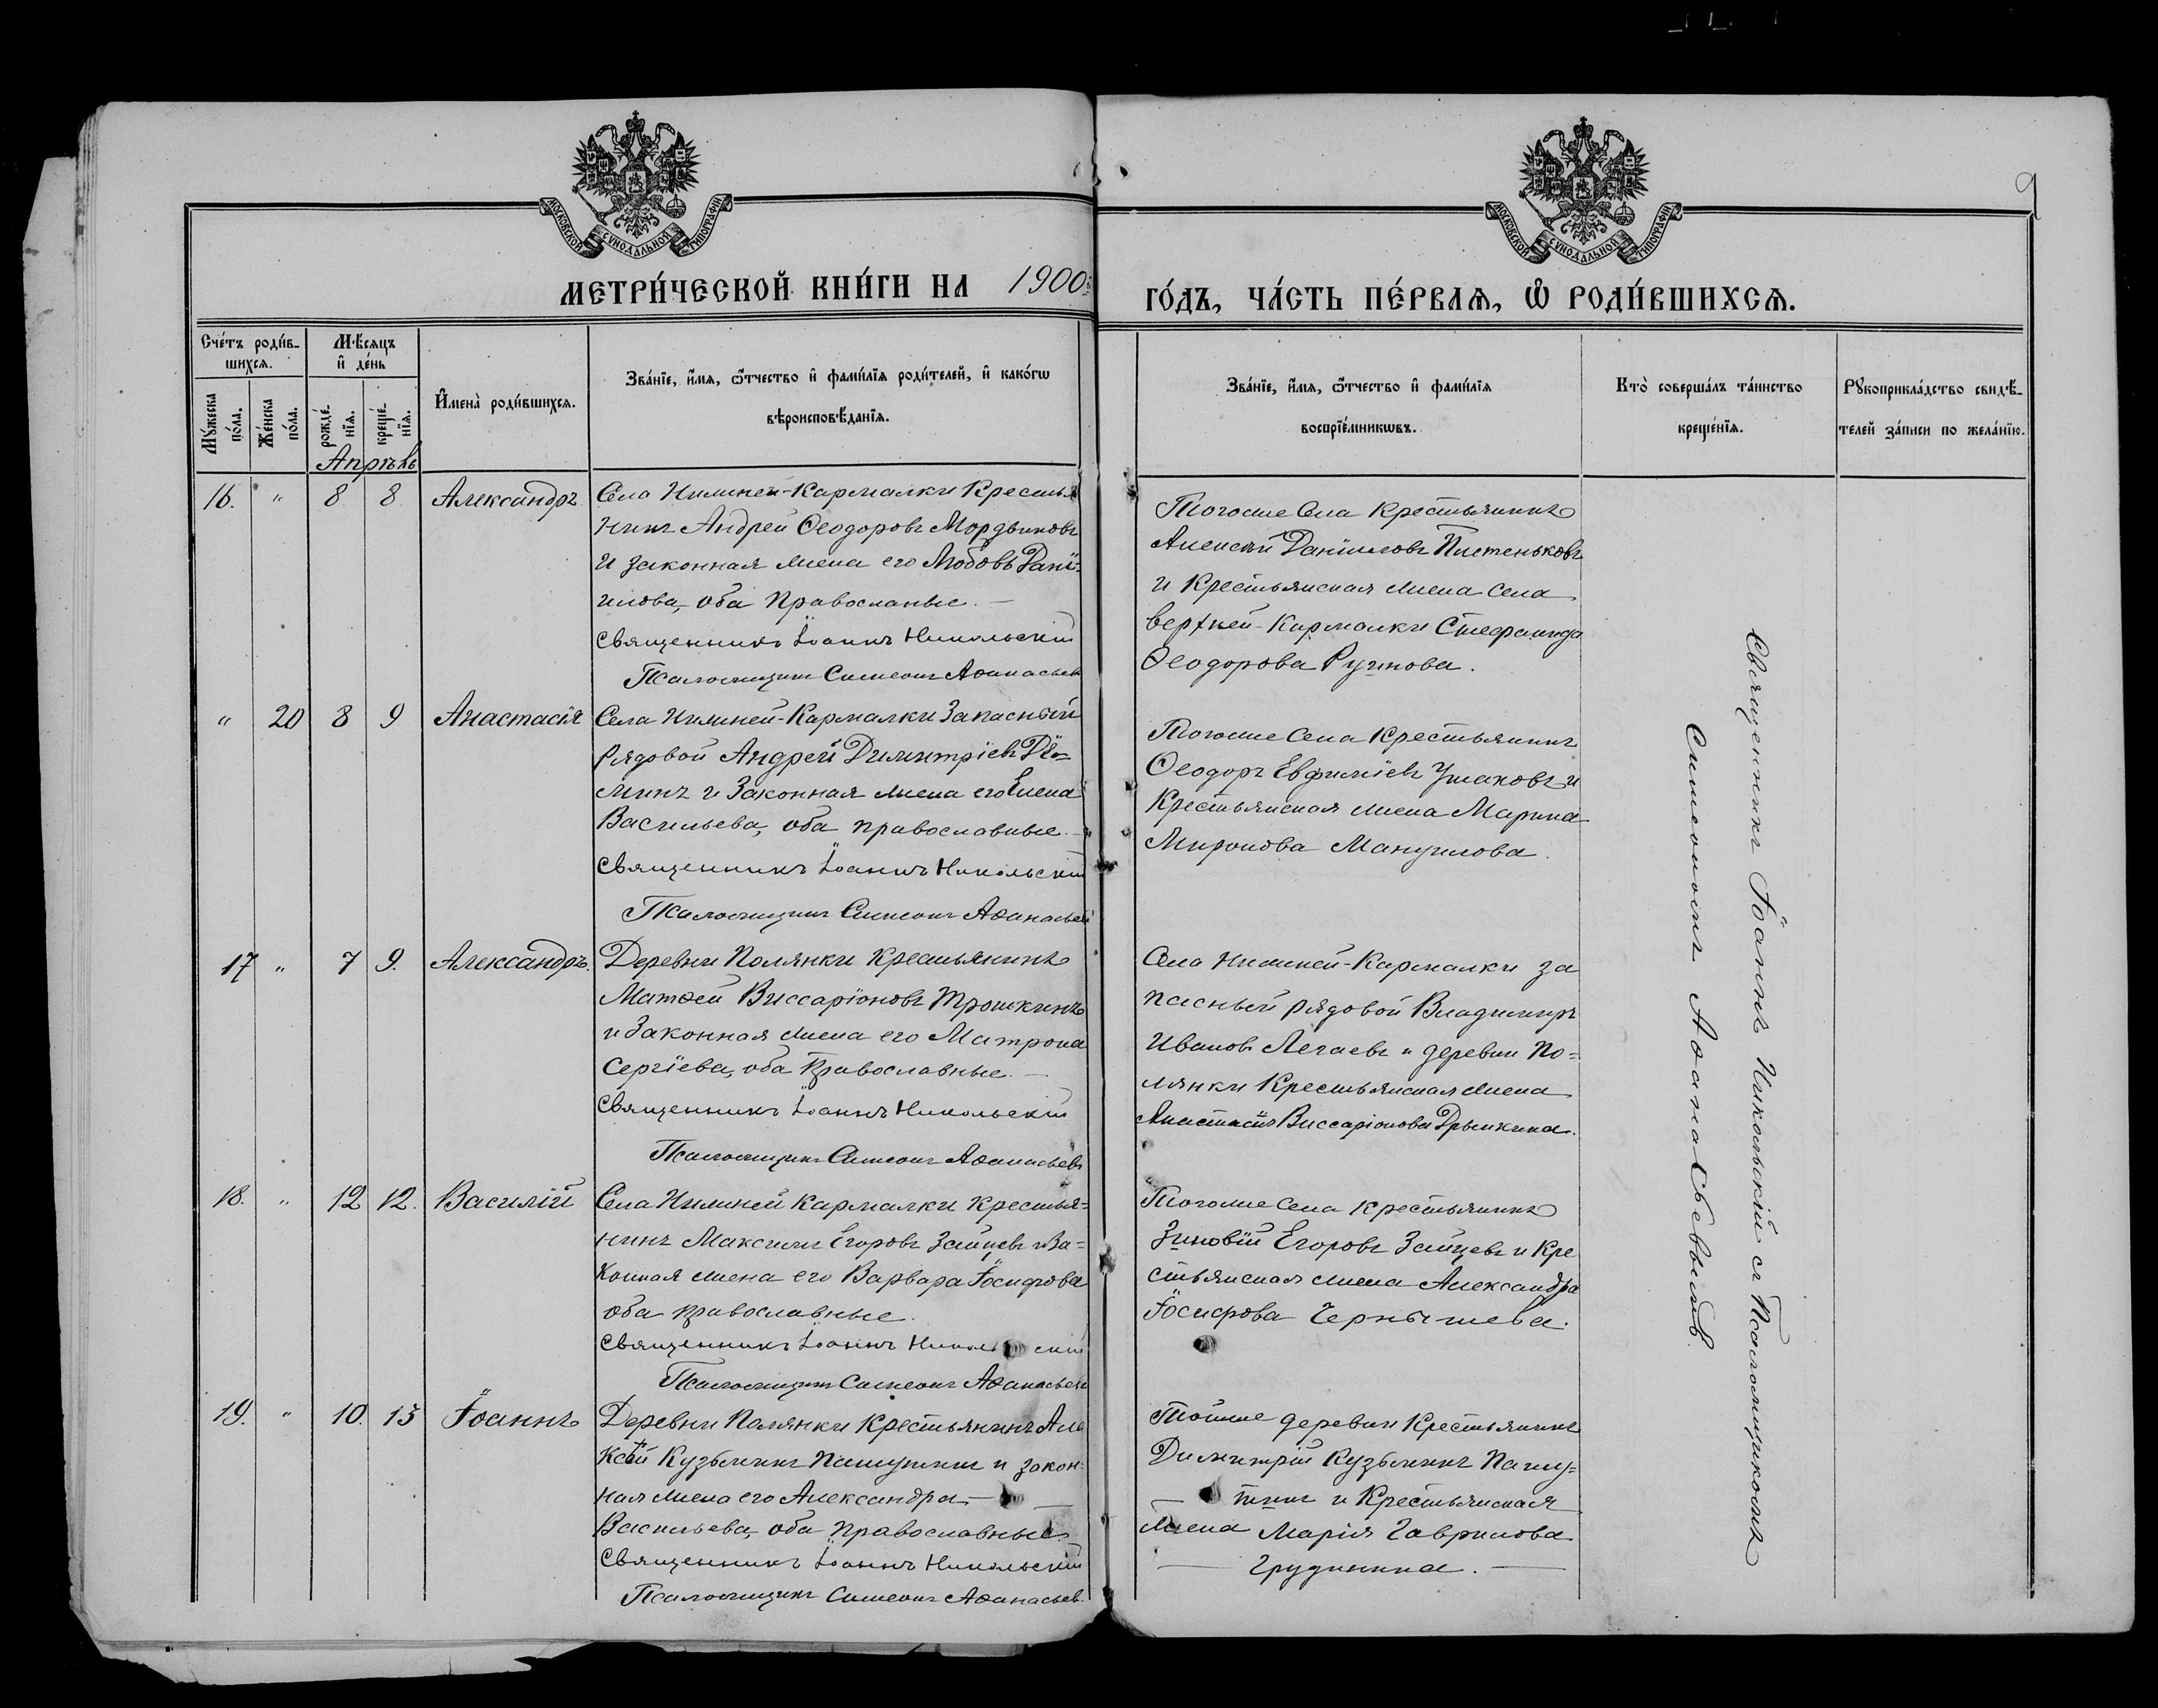 9
МОСКОВСКОЙ СУНОДАЛЬНОЙ ТИПОГРАФІИ
МОСКОВСКОЙ СУНОДАЛЬНОЙ ТИПОГРАФІИ
МЕТРИ́ЧЕСКОЙ КНИ́ГИ НА 1900й
ГО́ДЪ, ЧА́СТЬ ПЕ́РВАѦ, Ѡ РОДИ́ВШИХСѦ.
Сче́тъ роди́в-
шихсѧ.
Мꙋ́жеска
по́ла.
Же́нска
по́ла.
Мѣ́сѧцъ
и҆ де́нь
рожде́-
нїѧ.
креще́-
нїѧ.
Апрѣль
И҆мена̀ роди́вшихсѧ.
Зва́нїе, и҆́мѧ, ѻ҆́тчество и҆ фами́лїѧ роди́телей, и҆ како́гѡ
вѣроисповѣ́данїѧ.
Зва́нїе, и҆́мѧ, ѻ҆́тчество и҆ фами́лїѧ
воспрїе́мникѡвъ.
Кто̀ соверша́лъ та́инство
креще́нїѧ.
Рꙋкоприкла́дство свидѣ́-
телей за́писи по жела́нїю.
16. " 8 8 Александръ
Села Нижней-Кармалки Крестья
нинъ Андрей Ѳеодоровъ Мордвиновъ
и законная жена его Любовь Дані-
илова, оба Православные. —
Священникъ Іоаннъ Никольскій
Псаломщикъ Симеонъ Аѳанасьев
Тогоже Села Крестьянинъ
Алексѣй Даніиловъ Пистеньковъ
и Крестьянская жена села
верхней-Кармалки Стефанида
Ѳеодорова Ручнова.
" 20 8 9 Анастасія
Села Нижней-Кармалки Запасный
рядовой Андрей Димитріевъ Дё-
минъ и Законная жена его Елена
Васильева, оба православные. —
Священникъ Іоаннъ Никольскій
Псаломщикъ Симеонъ Аѳанасьев
Тогоже Села Крестьянинъ
Ѳеодоръ Евфиміевъ Ушаковъ и
Крестьянская жена Марина
Миронова Мануилова.
17 " 7 9. Александръ.
Деревни Полянки Крестьянинъ
Матѳей Виссаріоновъ Трошкинъ
и Законная жена его Матрона
Сергіева, оба Православные. —
Священникъ Іоаннъ Никольскій
Псаломщикъ Симеонъ Аѳанасьевъ
Села Нижней-Кармалки за
пасный рядовой Владимиръ
Ивановъ Легаевъ и деревни По-
лянки Крестьянская жена
Анастасія Виссаріонова Дрымкина.
18. " 12 12. Василій
Села Нижней Кармалки Крестья-
нинъ Максимъ Егоровъ Зайцевъ и за-
конная жена его Варвара Іосифова
оба православные.
Священникъ Іоаннъ Никольскій
Псаломщикъ Симеонъ Аѳанасьевъ
Тогоже Села Крестьянинъ
Зиновій Егоровъ Зайцевъ и Кре
стьянская жена Александра
Іосифова Чернышева.
19. " 10. 13 Іоаннъ
Деревни Полянки Крестьянинъ Але
ксѣй Кузьминъ Пашутинъ и закон-
ная жена его Александра —
Васильева, оба православные
Священникъ Іоаннъ Никольскій
Псаломщикъ Симеонъ Аѳанасьев.
Тойже деревни Крестьянинъ
Димитрій Кузьминъ Пашу-
— тинъ и Крестьянская
жена Марія Гаврилова
— Грудинина. —
Священникъ Іоаннъ Никольскій съ Псаломщикомъ
Симеономъ Аѳанасьевымъ